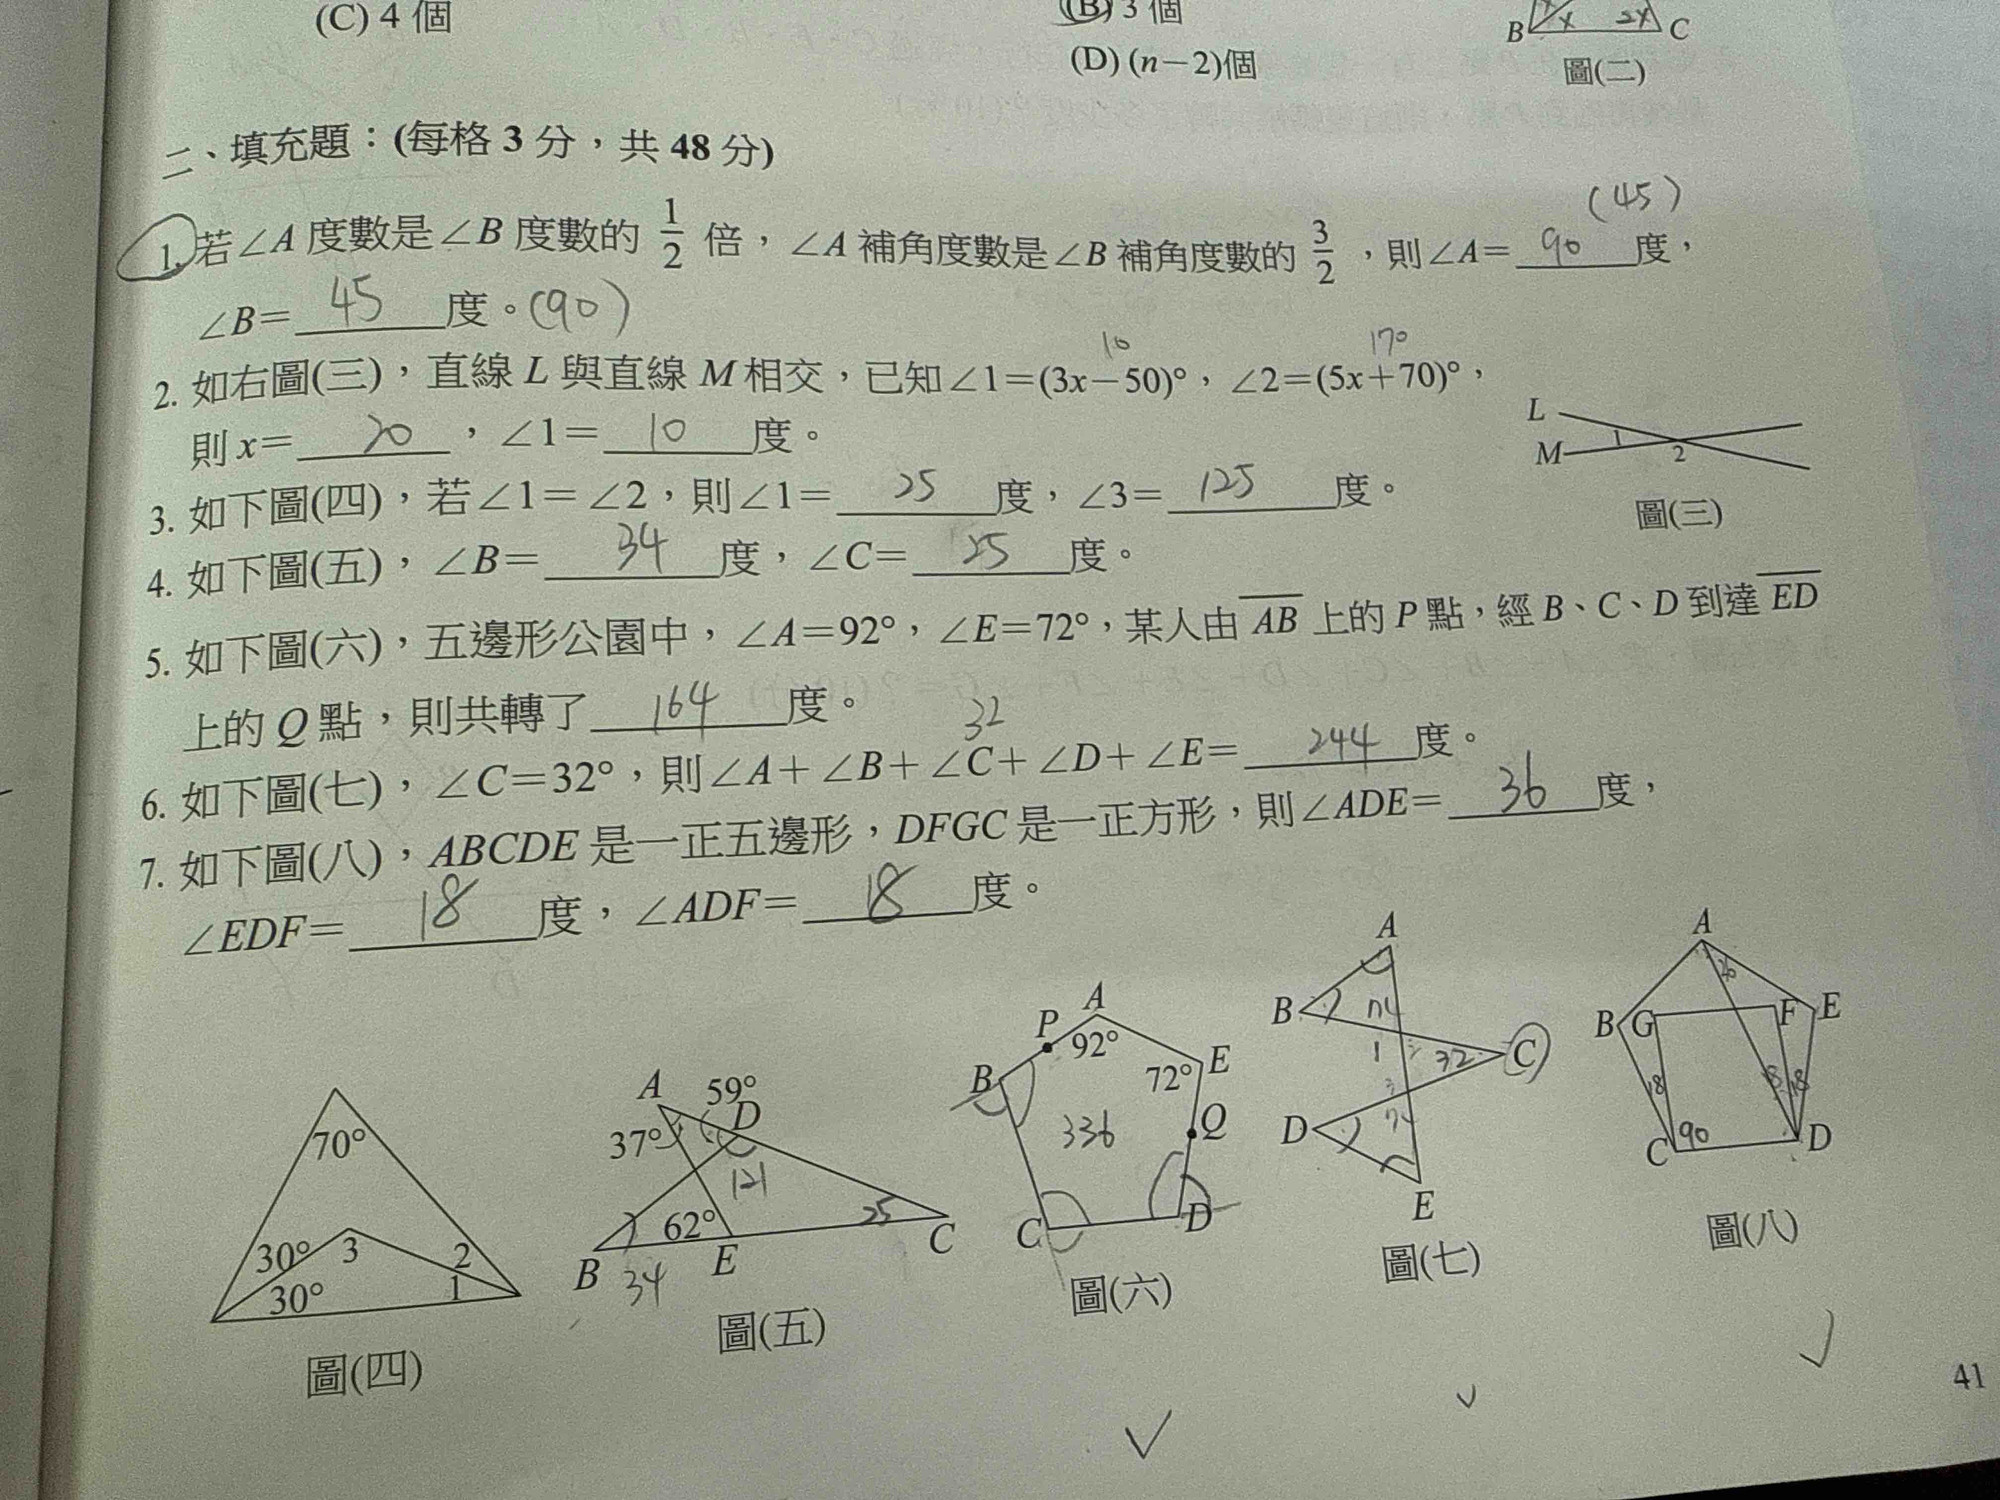 (C) 4 個
(B) 3 個
(D) (n－2)個
B x 2x C
圖(二)
二、填充題：(每格 3 分，共 48 分)
(45)
1. 若∠A 度數是∠B 度數的 1/2 倍，∠A 補角度數是∠B 補角度數的 3/2，則∠A＝ 90 度，
∠B＝ 45 度。(90)
10 170
2. 如右圖(三)，直線 L 與直線 M 相交，已知∠1＝(3x－50)°，∠2＝(5x＋70)°，
則 x＝ 20 ，∠1＝ 10 度。
L
M 1 2
圖(三)
3. 如下圖(四)，若∠1＝∠2，則∠1＝ 25 度，∠3＝ 125 度。
4. 如下圖(五)，∠B＝ 34 度，∠C＝ 25 度。
5. 如下圖(六)，五邊形公園中，∠A＝92°，∠E＝72°，某人由 AB 上的 P 點，經 B、C、D 到達 ED
上的 Q 點，則共轉了 164 度。
32
6. 如下圖(七)，∠C＝32°，則∠A＋∠B＋∠C＋∠D＋∠E＝ 244 度。
7. 如下圖(八)，ABCDE 是一正五邊形，DFGC 是一正方形，則∠ADE＝ 36 度，
∠EDF＝ 18 度，∠ADF＝ 18 度。
70°
30° 3 2
30° 1
圖(四)
A 59°
37° D
121
62° 25
B 34 E C
圖(五)
P A
92°
B 72° E
336 Q
C D
圖(六)
A
B
1 32 C
3
D
E
圖(七)
A
36
B G F E
18 18 18
C 90 D
圖(八)
41